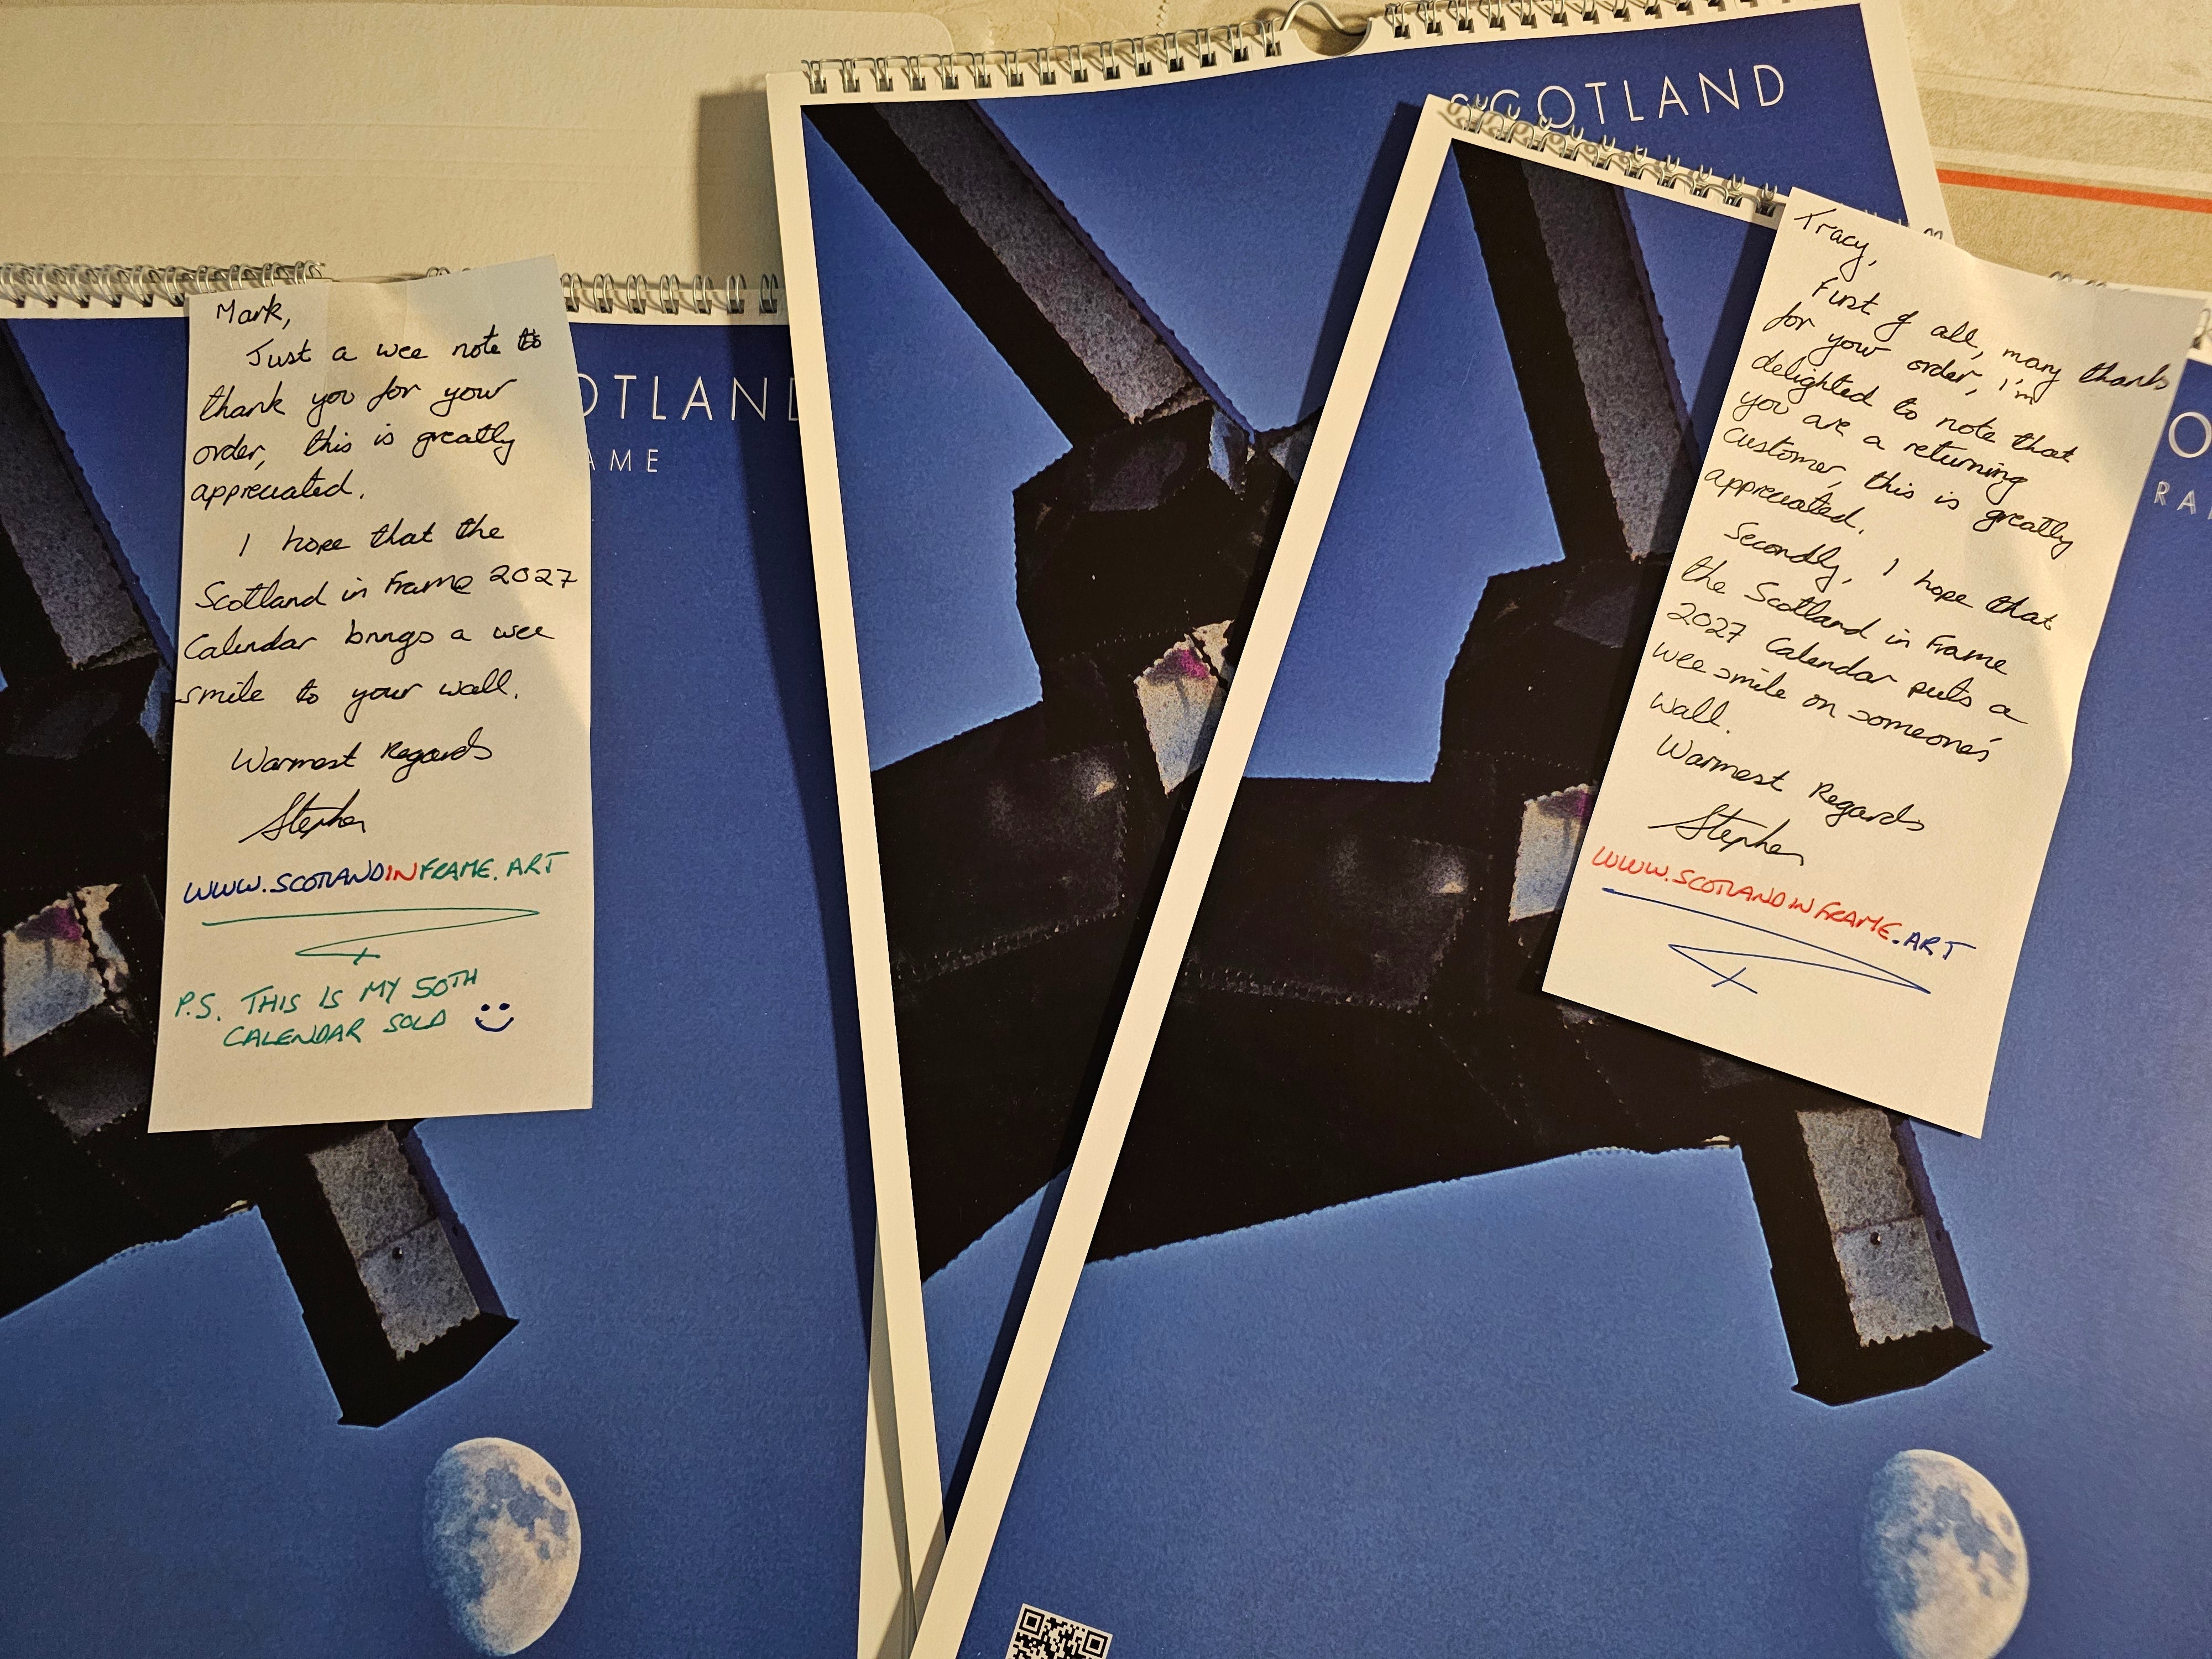 SCOTLAND
Mark,
Just a wee note to
thank you for your
order, this is greatly
appreciated.
I hope that the
Scotland in Frame 2027
Calendar brings a wee
smile to your wall.
Warmest Regards
Stephen
WWW.SCOTLANDINFRAME.ART
P.S. THIS IS MY 50TH
CALENDAR SOLD
OTLAND
AME
Tracy,
First of all, many thanks
for your order, I'm
delighted to note that
you are a returning
customer, this is greatly
appreciated.
Secondly, I hope that
the Scotland in Frame
2027 Calendar puts a
wee smile on someone's
wall.
Warmest Regards
Stephen
WWW.SCOTLANDINFRAME.ART
O
RA